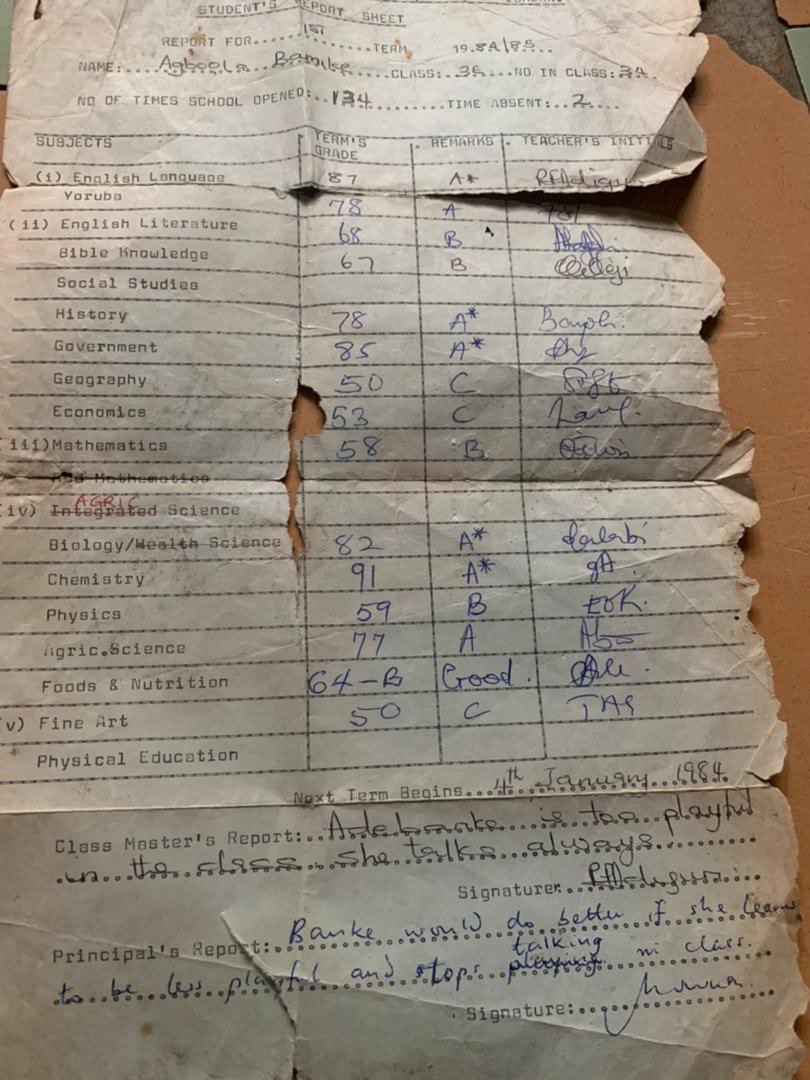 STUDENT'S REPORT SHEET
REPORT FOR......1ST......TERM 19.8
NAME:....Agboola Banike....CLASS:..3A..NO IN CLASS:34.
NO OF TIMES SCHOOL OPENED:..134.........TIME ABSENT:..2....
SUBJECTS TERM'S GRADE REMARKS TEACHER'S INITIALS
(i) English Language 87 A*
Yoruba 78 A
(ii) English Literature 68 B
Bible Knowledge 67 B
Social Studies
History 78 A*
Government 85 A*
Geography 50 C
Economics 53 C
(iii)Mathematics 58 B
Add Mathematics
AGRIC
(iv) Integrated Science
Biology/Health Science 82 A*
Chemistry 91 A*
Physics 59 B
Agric.Science 77 A
Foods & Nutrition 64-B Good.
(v) Fine Art 50 C
Physical Education
Next Term Begins...4th January 1984
Class Master's Report:..Adebanke is too playful
in the class she talks always
Signature:
Principal's Report: Banke would do better if she learns
talking
to be less playful and stops playing in class.
Signature: